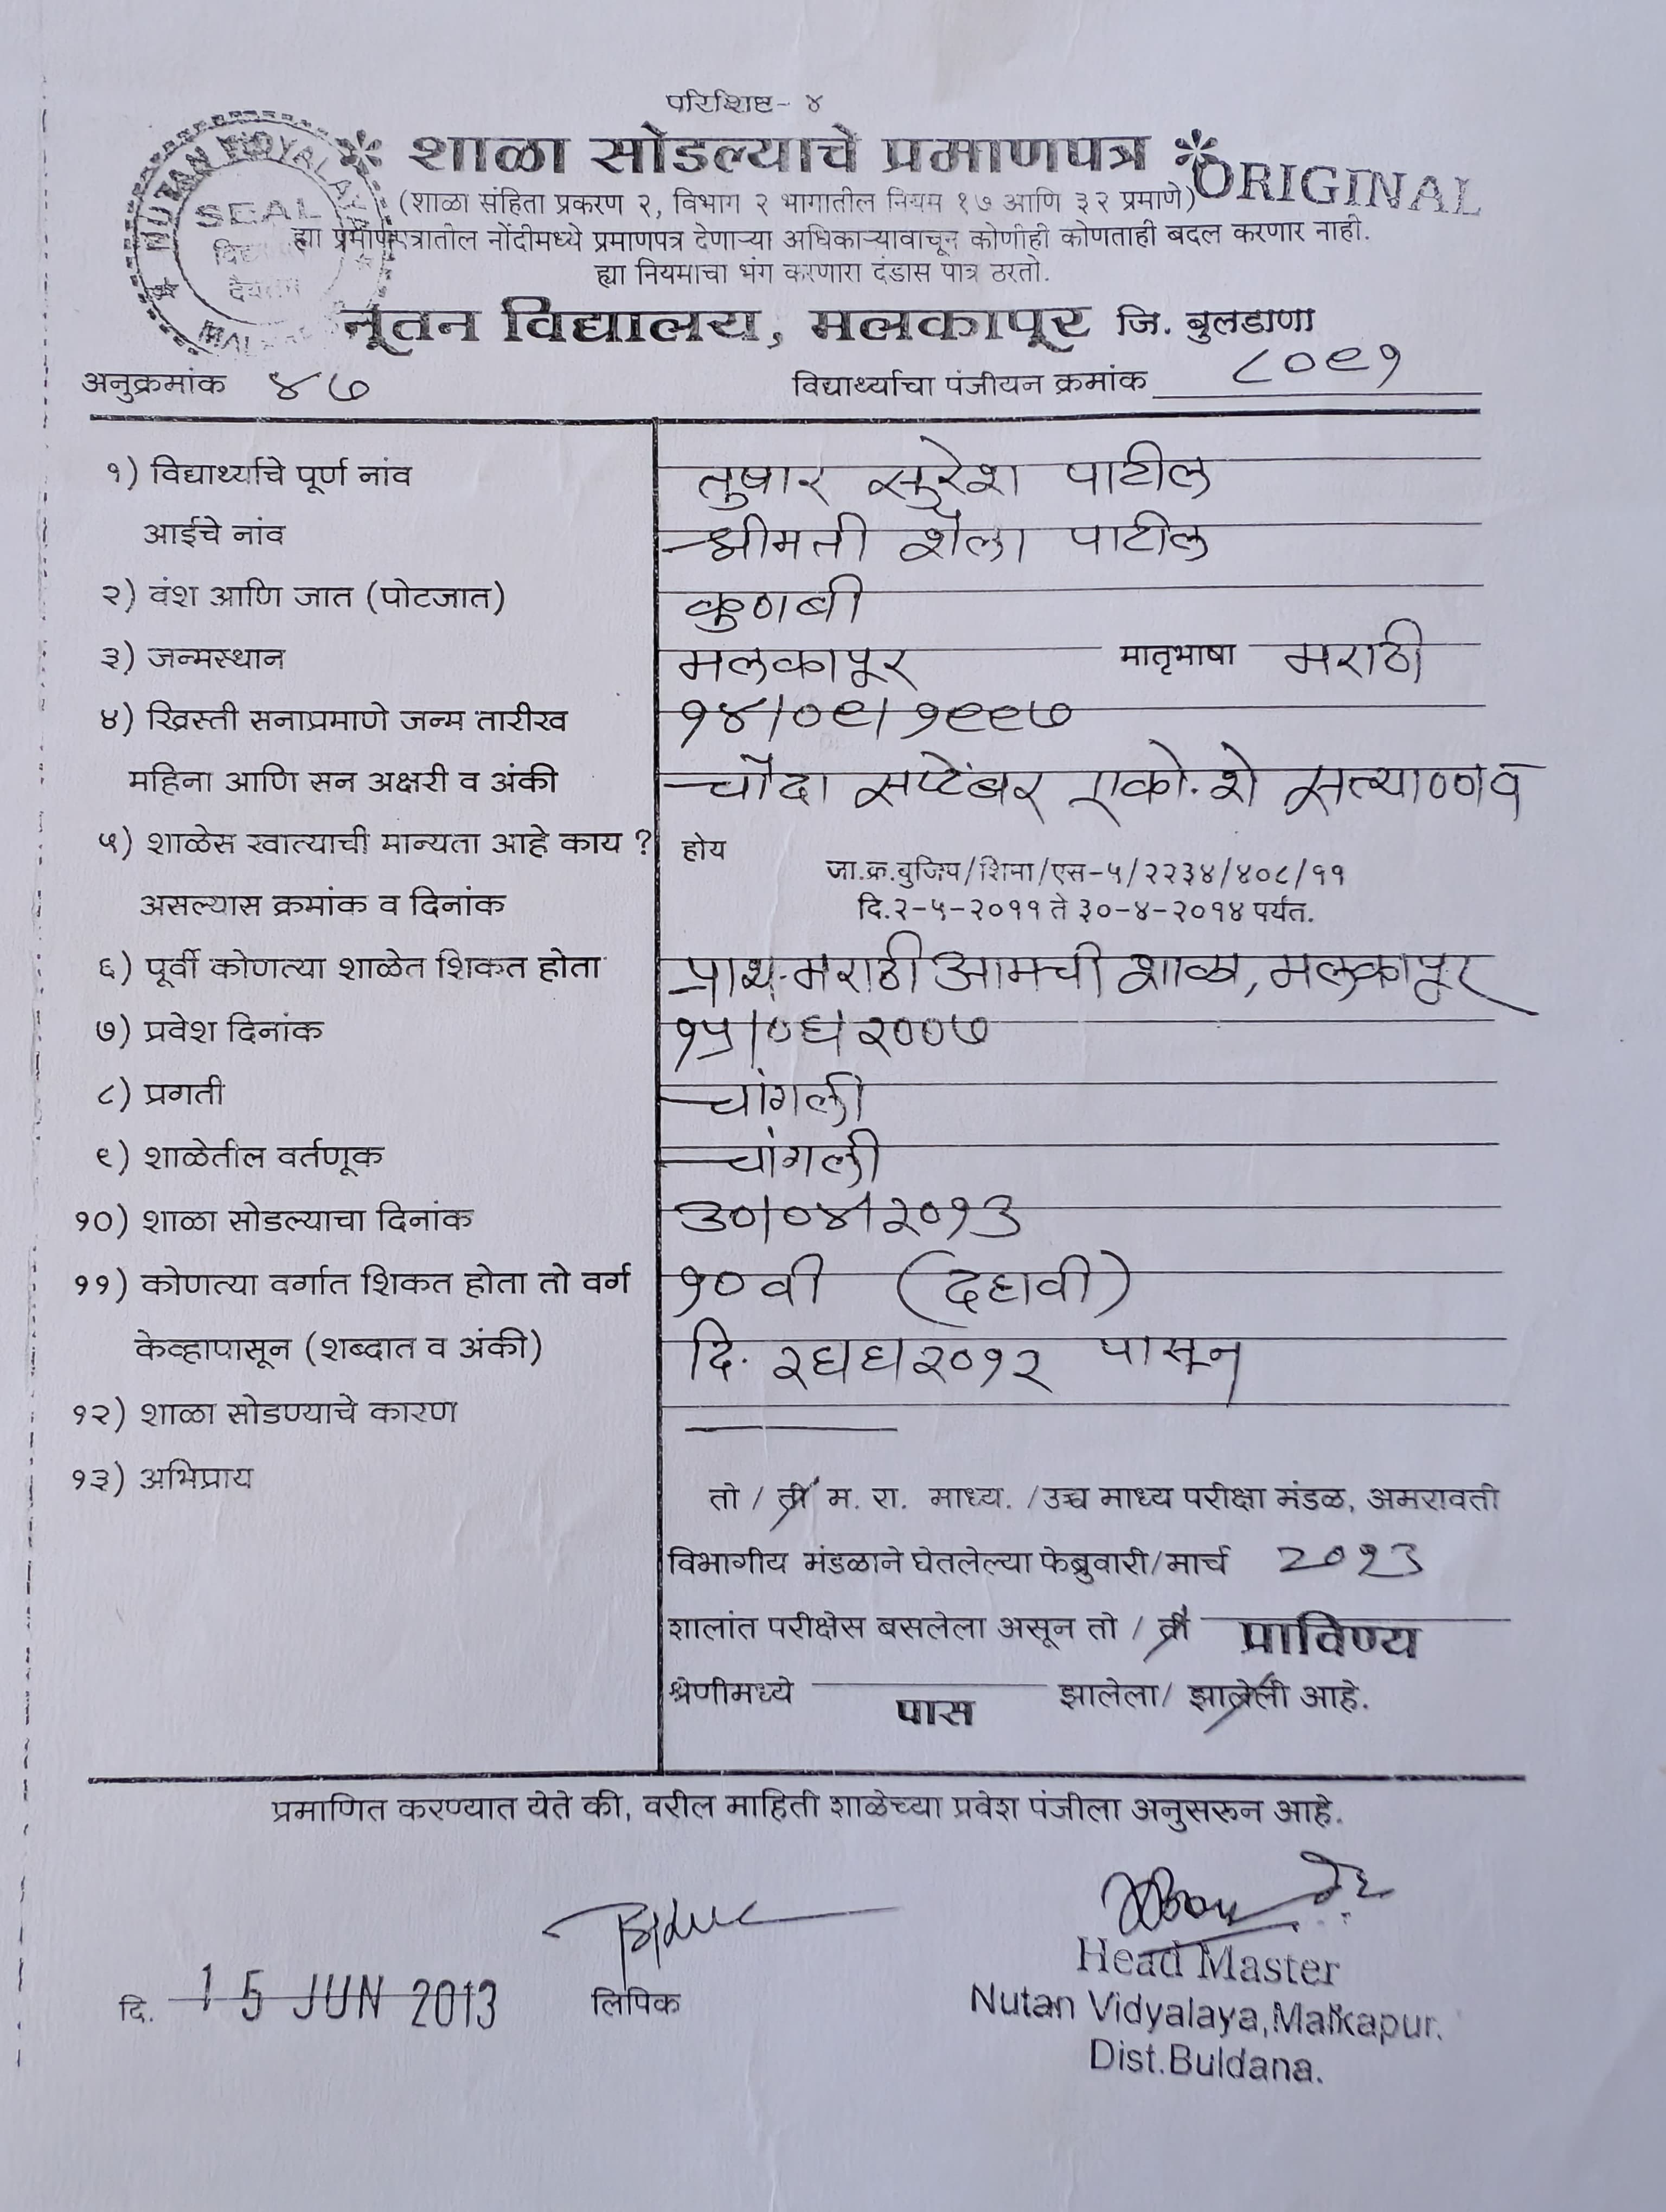 परिशिष्ट- ४
* शाळा सोडल्याचे प्रमाणपत्र *
ORIGINAL
(शाळा संहिता प्रकरण २, विभाग २ भागातील नियम १७ आणि ३२ प्रमाणे)
ह्या प्रमाणपत्रातील नोंदीमध्ये प्रमाणपत्र देणाऱ्या अधिकाऱ्यावाचून कोणीही कोणताही बदल करणार नाही.
ह्या नियमाचा भंग करणारा दंडास पात्र ठरतो.
NUTAN VIDYALAYA
SEAL
नूतन विद्यालय, मलकापूर जि. बुलडाणा
अनुक्रमांक ४७ विद्यार्थ्याचा पंजीयन क्रमांक ८०९१
१) विद्यार्थ्याचे पूर्ण नांव तुषार सुरेश पाटील
आईचे नांव श्रीमती शैला पाटील
२) वंश आणि जात (पोटजात) कुणबी
३) जन्मस्थान मलकापूर मातृभाषा मराठी
४) ख्रिस्ती सनाप्रमाणे जन्म तारीख १४/०९/१९९७
महिना आणि सन अक्षरी व अंकी चौदा सप्टेंबर एको. शे सत्याण्णव
५) शाळेस खात्याची मान्यता आहे काय ? होय
जा.क्र.बुजिप/शिमा/एस-५/२२३४/४०८/११
असल्यास क्रमांक व दिनांक दि.२-५-२०११ ते ३०-४-२०१४ पर्यत.
६) पूर्वी कोणत्या शाळेत शिकत होता प्राथ. मराठी आमची शाळा, मलकापूर
७) प्रवेश दिनांक १५/०६/२००७
८) प्रगती चांगली
९) शाळेतील वर्तणूक चांगली
१०) शाळा सोडल्याचा दिनांक ३०/०४/२०१३
११) कोणत्या वर्गात शिकत होता तो वर्ग १० वी (दहावी)
केव्हापासून (शब्दात व अंकी) दि. २६/६/२०१२ पासून
१२) शाळा सोडण्याचे कारण
१३) अभिप्राय
तो / ती म. रा. माध्य. /उच्च माध्य परीक्षा मंडळ, अमरावती
विभागीय मंडळाने घेतलेल्या फेब्रुवारी/मार्च 2०१3
शालांत परीक्षेस बसलेला असून तो / ती प्राविण्य
श्रेणीमध्ये पास झालेला/ झालेली आहे.
प्रमाणित करण्यात येते की, वरील माहिती शाळेच्या प्रवेश पंजीला अनुसरून आहे.
दि. 15 JUN 2013 लिपिक
Head Master
Nutan Vidyalaya, Malkapur.
Dist.Buldana.